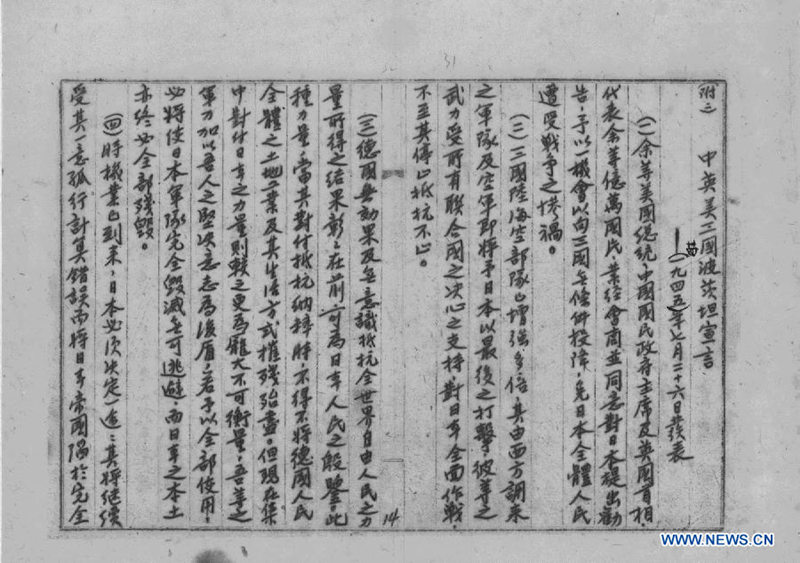 31
附二
中英美三國波茨坦宣言
(一九四五年七月二十六日發表)
(一)余等美國總統,中國國民政府主席及英國首相
代表余等億萬國民,業經會商並同意對日本提出勸
告,予以一機會以向三國無條件投降,免日本全體人民
遭受戰爭之慘禍。
(二)三國陸海空部隊已增強多倍,其由西方調來
之軍隊及空軍即將予日本以最後之打擊,彼等之
武力受所有聯合國之决心之支持對日本全面作戰,
不至其停止抵抗不止。
(三)德國無効果及無意識抵抗全世界自由人民之力
量所得之結果彰彰在前,可為日本人民之殷鑒。此
種力量,當其對付抵抗納粹時,不得不將德國人民
全體之土地工業及其生活方式摧殘殆盡。但現在集
中對付日本之力量則較之更為龐大不可衡量。吾等之
軍力加以吾人之堅決意志為後盾,若予以全部使用,
必將使日本軍隊完全毀滅無可逃避,而日本之本土
亦終必全部殘毀。
(四)時機業已到來,日本必須決定一途:其將繼續
受其一意孤行計算錯誤而將日本帝國陷於完全
14
WWW.NEWS.CN